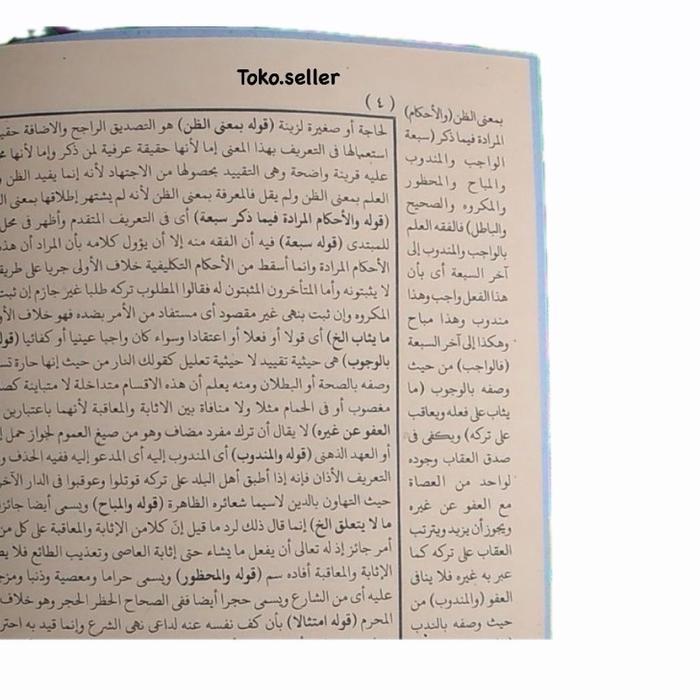 Toko.seller
( ٤ )
بمعنى الظن (والأحكام)
المرادة فيما ذكر (سبعة
الواجب والمندوب
والمباح والمحظور
والمكروه والصحيح
والباطل) فالفقه العلم
بالواجب والمندوب إلى
آخر السبعة أى بأن
هذا الفعل واجب وهذا
مندوب وهذا مباح
وهكذا إلى آخر السبعة
(فالواجب) من حيث
وصفه بالوجوب (ما
يثاب على فعله ويعاقب
على تركه) ويكفى فى
صدق العقاب وجوده
لواحد من العصاة
مع العفو عن غيره
ويجوز أن يريد ويترتب
العقاب على تركه كما
عبر به غيره فلا ينافى
العفو (والمندوب) من
حيث وصفه بالندب
لحاجة أو صغيرة لزينة (قوله بمعنى الظن) هو التصديق الراجح والاضافة
استعمالها فى التعريف بهذا المعنى إما لأنها حقيقة عرفية لمن ذكر وإما لأنها
عليه قرينة واضحة وهى التقييد بحصولها من الاجتهاد لأنه إنما يفيد الظن
العلم بمعنى الظن ولم يقل فالمعرفة بمعنى الظن لأنه لم يشتهر إطلاقها بمعنى
(قوله والأحكام المرادة فيما ذكر سبعة) أى فى التعريف المتقدم وأظهر فى محل
للمبتدى (قوله سبعة) فيه أن الفقه منه إلا أن يؤول كلامه بأن المراد أن هذه
الأحكام المرادة وانما أسقط من الأحكام التكليفية خلاف الأولى جريا على
لا يثبتونه وأما المتأخرون المثبتون له فقالوا المطلوب تركه طلبا غير جازم إن
المكروه وإن ثبت بنهى غير مقصود أى مستفاد من الأمر بضده فهو خلاف
ما يثاب الخ) أى قولا أو فعلا أو اعتقادا وسواء كان واجبا عينيا أو كفائيا
بالوجوب) هى حيثية تقييد لا حيثية تعليل كقولك النار من حيث إنها حارة
وصفه بالصحة أو البطلان ومنه يعلم أن هذه الاقسام متداخلة لا متباينة
مغصوب أو فى الحمام مثلا ولا منافاة بين الاثابة والمعاقبة لأنهما باعتبارين
العفو عن غيره) لا يقال أن ترك مفرد مضاف وهو من صيغ العموم لجواز حمل
أو العهد الذهنى (قوله والمندوب) أى المندوب إليه أى المدعو إليه ففيه الحذف
التعريف الأذان فإنه إذا أطبق أهل البلد على تركه قوتلوا وعوقبوا فى الدار
حيث التهاون بالدين لاسيما شعائره الظاهرة (قوله والمباح) ويسمى أيضا
ما لا يتعلق الخ) إنما قال ذلك لرد ما قيل إنّ كلا من الإثابة والمعاقبة على كل من
أمر جائز إذ له تعالى أن يفعل ما يشاء حتى إثابة العاصى وتعذيب الطائع فلا
الإثابة والمعاقبة أفاده سم (قوله والمحظور) ويسمى حراما ومعصية وذنبا
عليه أى من الشارع ويسمى حجرا أيضا ففى الصحاح الحظر الحجر وهو خلاف
المحرم (قوله امتثالا) بأن كف نفسه عنه لداعى نهى الشرع وإنما قيد به